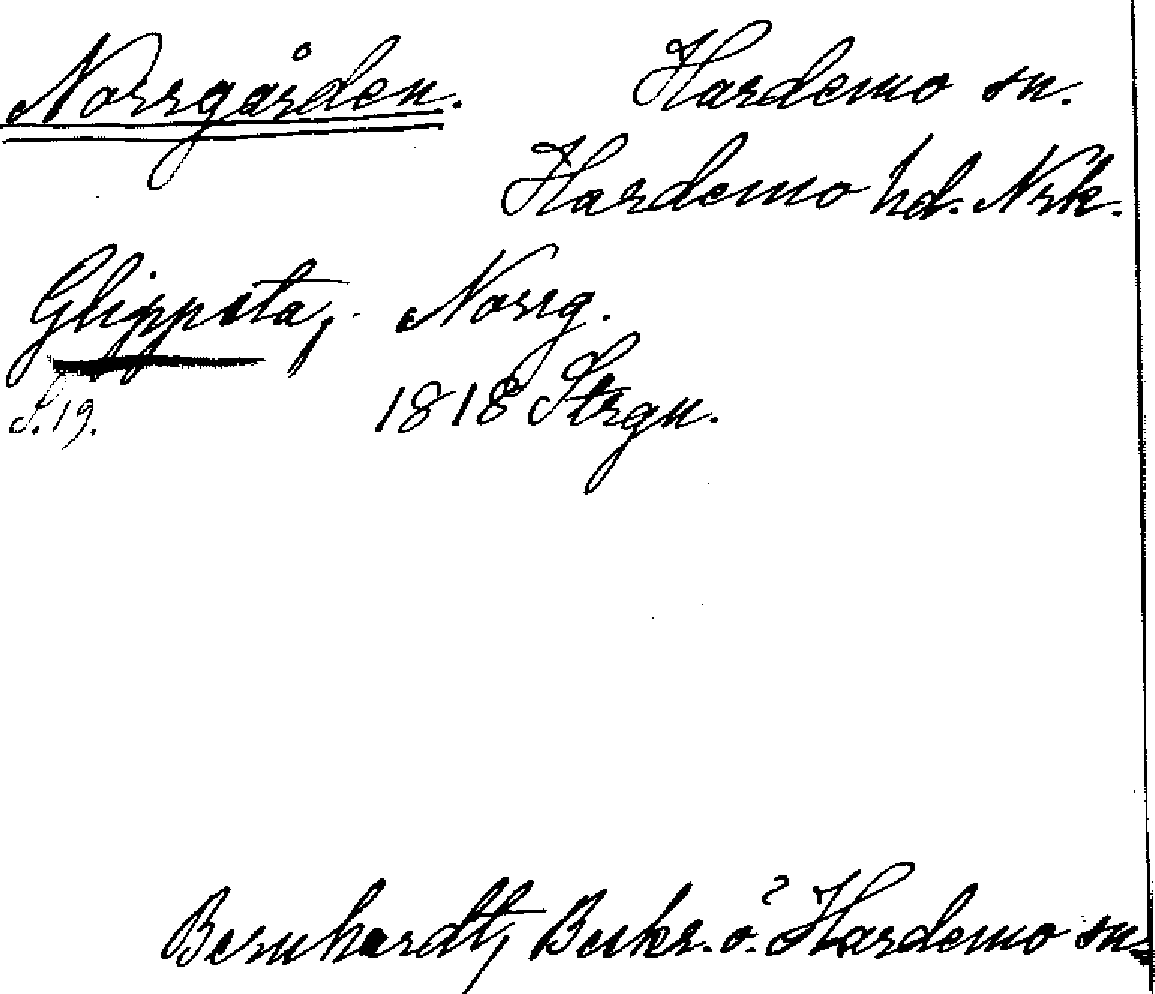 Norrgården. Hardemo sn.
Hardemo hd. Nrk.
Glippsta, Norrg.
S. 19. 1818 Strgn.
Bernhardt, Beskr. ö. Hardemo sn.